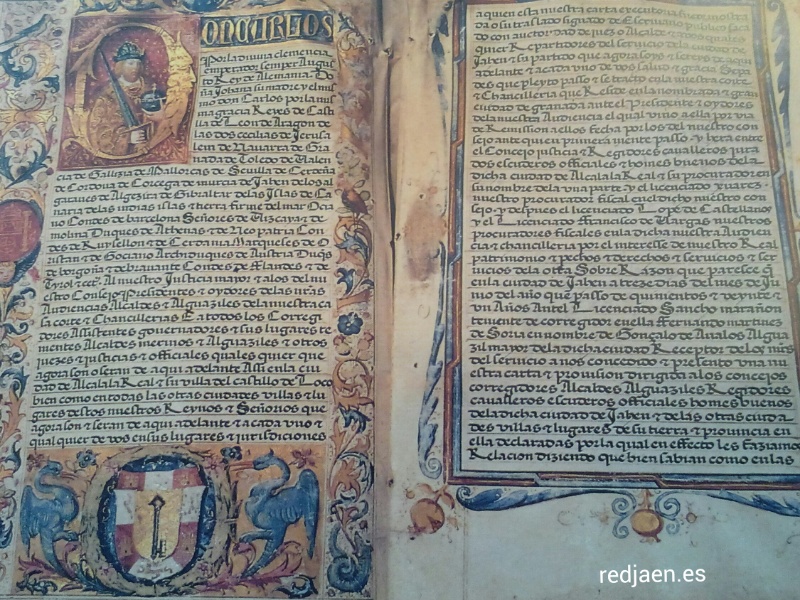 ON CARLOS
por la diuina clemencia
emperador semper Augus
to Rey de Alemania. Do
ña Johana su madre y el mis
mo don Carlos por la mis
ma gracia Reyes de Casti
lla de Leon de Aragon de
las dos cecilias de Jerusa
lem de Navarra de Gra
nada de Toledo de Valen
cia de Gallizia de Mallorcas de Sevilla de Cerdeña
de Cordova de Corcega de murcia de Jahen de los al
garaues de Algezira de Gibraltar de las Islas de Ca
naria de las indias islas & tierra firme del mar Oce
ano Condes de barcelona Señores de Vizcaya & de
molina Duques de Athenas & de Neopatria Con
des de Ruysellon & de Cerdania Marqueses de O
ristan & de Gociano Archiduques de Austria Duqs
de borgoña & de bravante Condes de Flandes & de
Tirol & cet. Al nuestro Justicia mayor & a los del nu
estro Consejo Presidentes & oydores de las nras
Audiencias Alcaldes & Alguaziles de la nuestra ca
sa corte & Chancillerias E a todos los Corregi
dores Assistentes governadores & sus lugares te
nientes Alcaldes merinos & Alguaziles & otros
juezes & justicias & officiales quales quier que
agora son o seran de aqui adelante Assi en la ciu
dad de Alcala la Real & su villa del castillo de Loco
bien como en todas las otras ciudades villas & lu
gares destos nuestros Reynos & Señorios que
agora son & seran de aqui adelante & a cada uno &
qualquier de vos en sus lugares & jurisdiciones
a quien esta nuestra carta executoria fuere mostra
da o su traslado signado de Escrivano publico saca
do con auctoridad de juez o Alcalde & a
quier Repartidores del servicio de la ciudad de
Jahen & su partido que agora soys & sereys de aqui
adelante & a cada uno de vos salud & gracia Sepa
des que pleyto passo & se tracto en la nuestra corte
& Chancilleria que Reside en la nombrada & gran
ciudad de granada ante el Presidente & oydores
de la nuestra Audiencia el qual vino a ella por via
de Remission a ellos fecha por los del nuestro con
sejo ante quien primeramente passo y hera entre
el Concejo justicia & Regidores cavalleros jura
dos escuderos officiales & homes buenos de la
dicha ciudad de Alcala la Real & su procurador en
su nombre de la una parte y el licenciado xuarez
nuestro procurador fiscal en el dicho nuestro con
sejo y despues el licenciado Lope de Castellano
y el Licenciado Francisco de Vargas nuestros
procuradores fiscales en la dicha nuestra Audien
cia & chancilleria por el interesse de nuestro Real
patrimonio & pechos & derechos & servicios & ser
vicios de la otra Sobre Razon que paresce q
en la ciudad de Jahen a treze dias del mes de Ju
nio del año que passo de quinientos & veynte &
un Años Ante L Licenciado Sancho marañon
teniente de corregidor en ella fernando martinez
de Soria en nombre de Gonçalo de Analos Algua
zil mayor de la dicha ciudad Receptor de los mrs
del servicio a nos concedido & presento una nu
estra carta & provision dirigida a los concejos
corregidores Alcaldes Alguaziles Regidores
cavalleros escuderos officiales homes buenos
de la dicha ciudad de Jahen & de las otras ciuda
des villas & lugares de su tierra & provincia en
ella declaradas por la qual en effecto les faziamos
Relacion diziendo que bien sabian como en las
redjaen.es